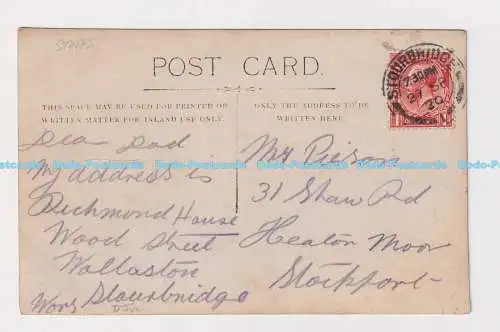 POST CARD.
THIS SPACE MAY BE USED FOR PRINTED OR
WRITTEN MATTER FOR INLAND USE ONLY.
ONLY THE ADDRESS TO BE
WRITTEN HERE.
Dear Dad
My address is
Richmond House
Wood Street
Wollaston
Stourbridge
Worc
Mr Pierson
31 Shaw Rd
Heaton Moor
Stockport
STOURBRIDGE
7.30PM
20